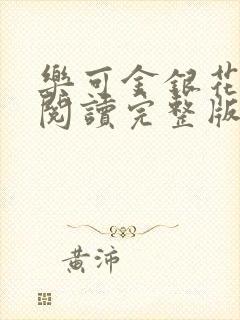 樂可金銀花
閱讀完整版
黃沛